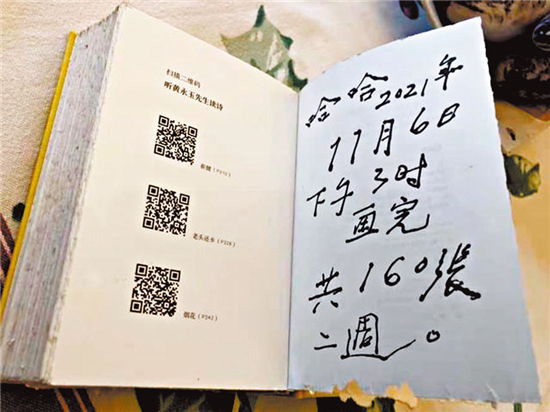 扫描二维码
听黄永玉先生读诗
老头还乡（P326）
烟花（P342）
哈哈2021年
11月6日
下午3时
画完
共160张
二週。